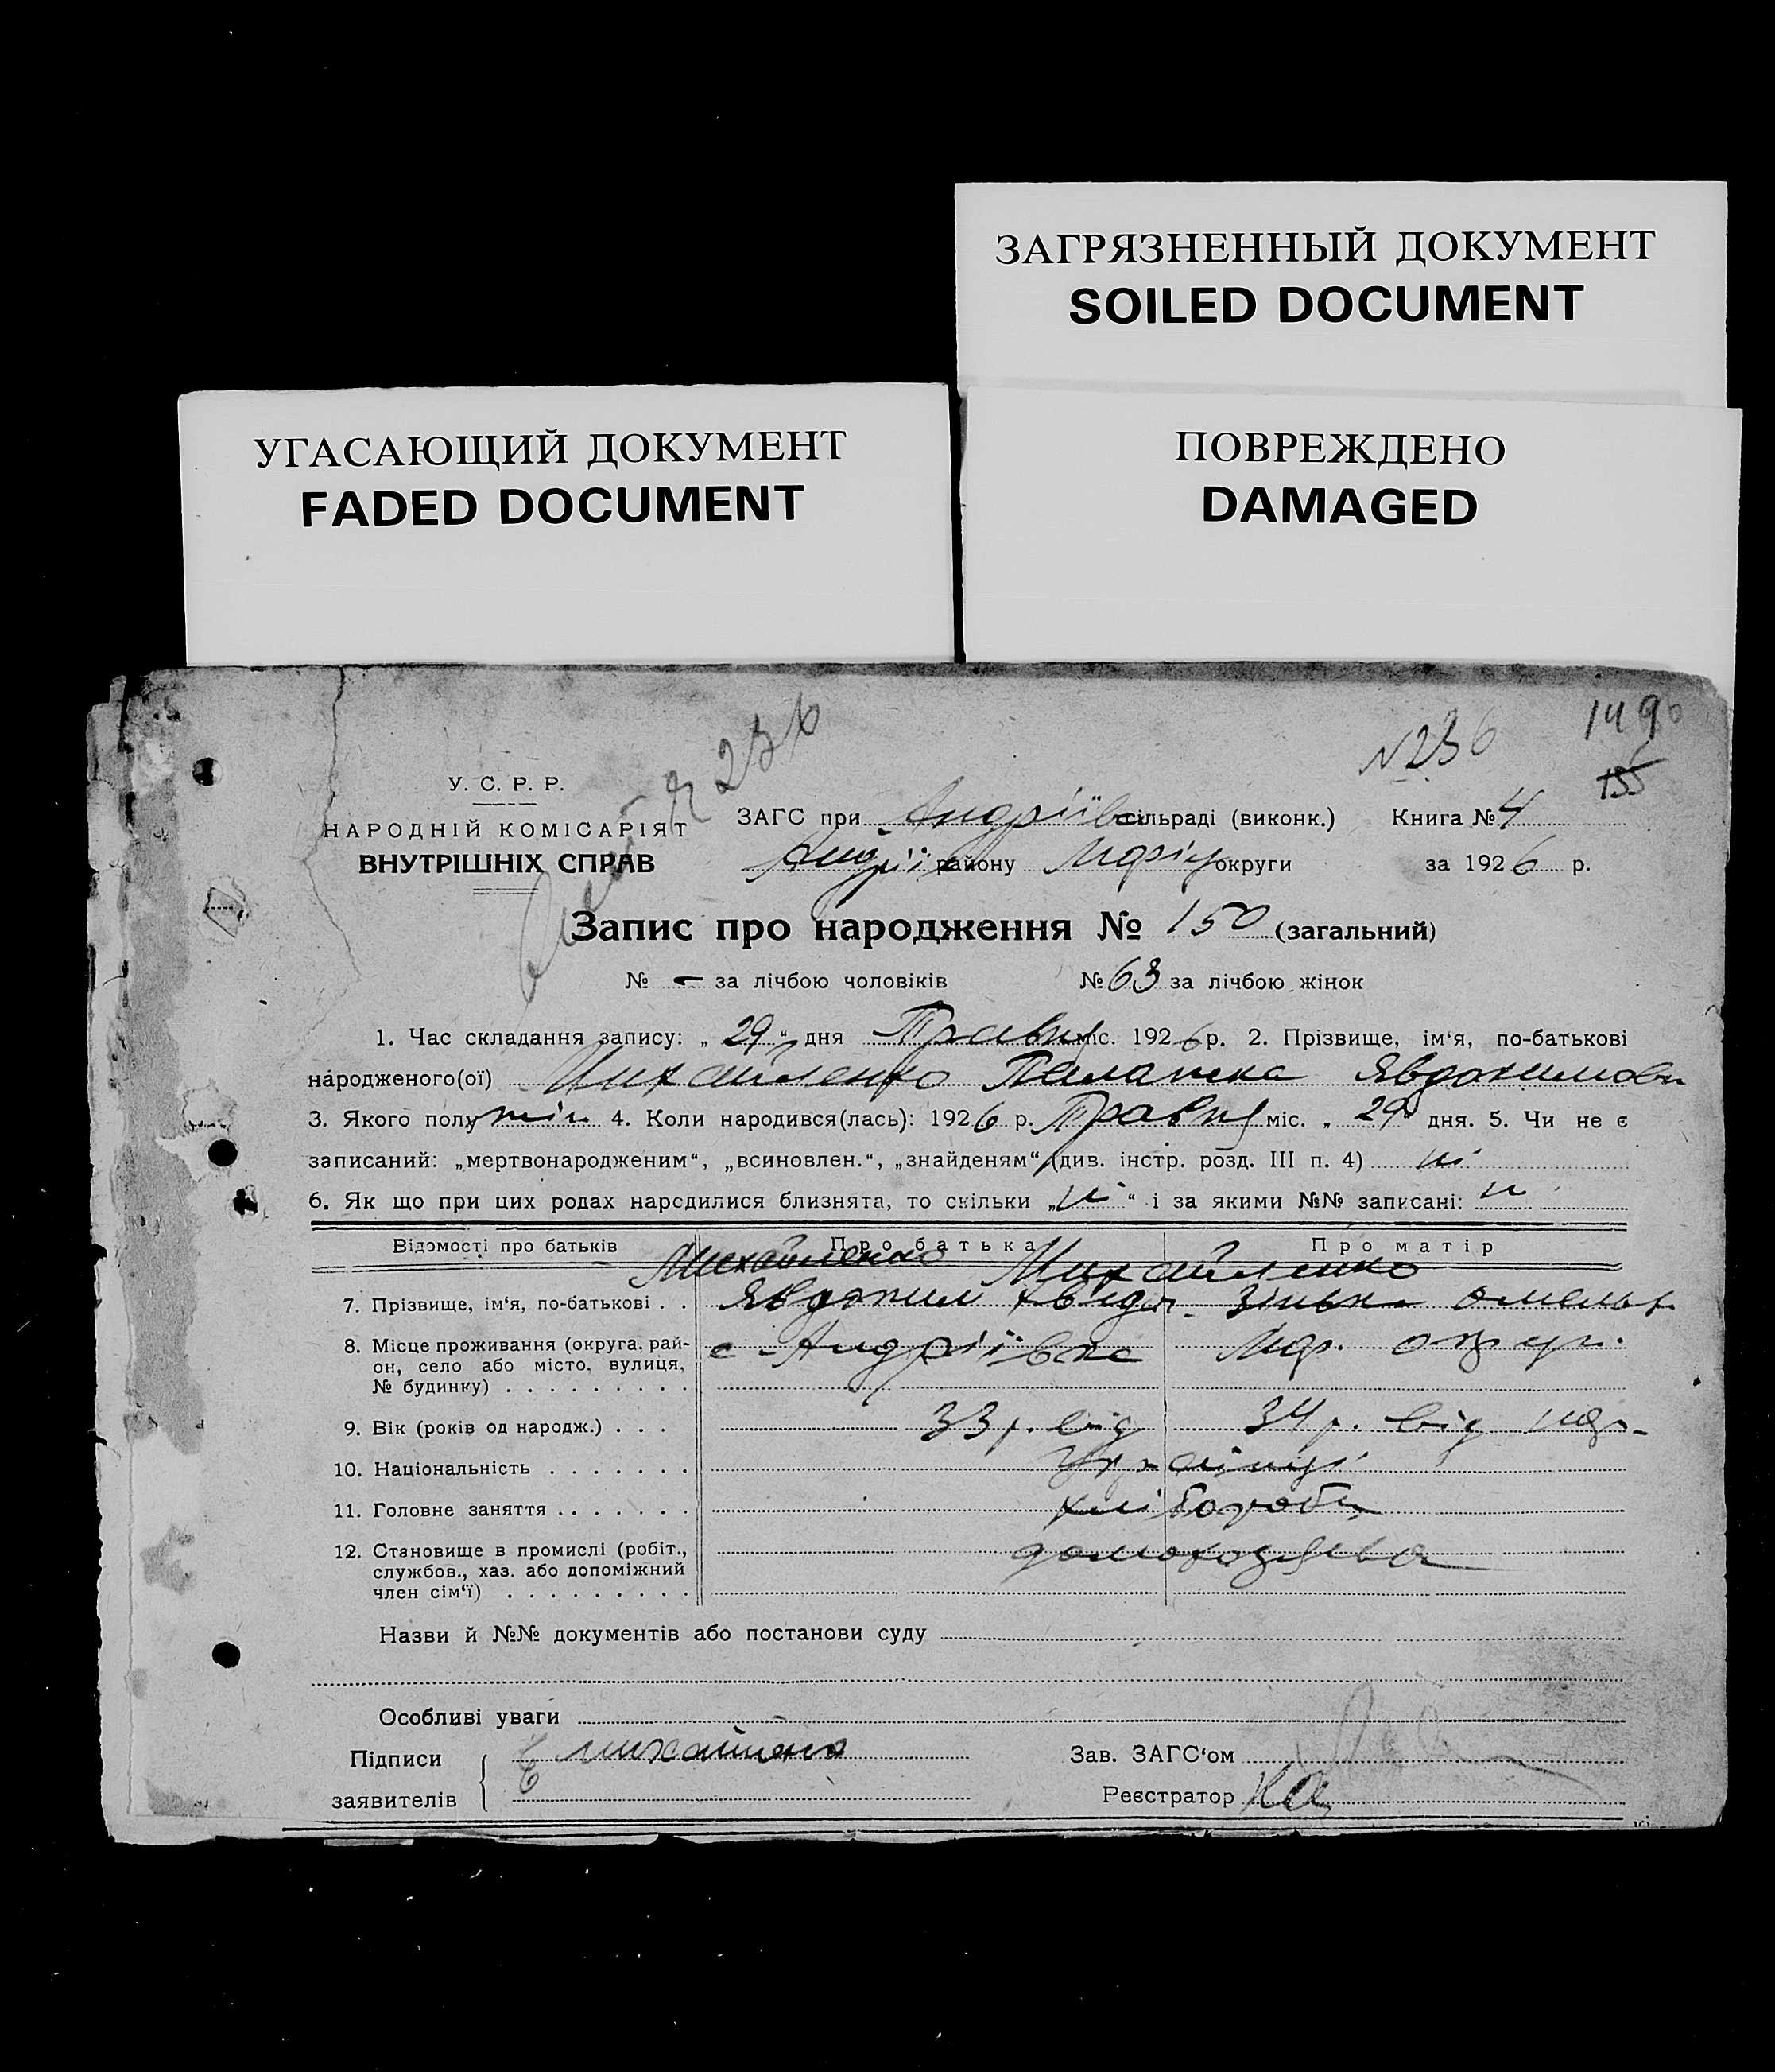 ЗАГРЯЗНЕННЫЙ ДОКУМЕНТ
SOILED DOCUMENT
УГАСАЮЩИЙ ДОКУМЕНТ
FADED DOCUMENT
ПОВРЕЖДЕНО
DAMAGED
149
N236
236
155
У. С. Р. Р.
НАРОДНІЙ КОМІСАРІЯТ
ВНУТРІШНІХ СПРАВ
ЗАГС при Андріївс сільраді (виконк.) Книга № 4
Андрії району округи за 1926 р.
Запис про народження № 150 (загальний)
№ - за лічбою чоловіків № 63 за лічбою жінок
1. Час складання запису: „ 29 “ дня Травн міс. 1926 р. 2. Прізвище, ім‘я, по-батькові
народженого(ої) Михайленко Палажка Явдокимовн
3. Якого полу жін 4. Коли народився(лась): 1926 р. Травн міс. „ 29 “ дня. 5. Чи не є
записаний: „мертвонародженим“, „всиновлен.“, „знайденям“ (див. інстр. розд. III п. 4) ні
6. Як що при цих родах народилися близнята, то скільки „ ні “ і за якими №№ записані: н
Відомості про батьків Про батька Про матір
Михайленко Михайленко
7. Прізвище, ім‘я, по-батькові . . Явдоким Зіньк Омельк
8. Місце проживання (округа, рай- с. Андріївка округ.
он, село або місто, вулиця,
№ будинку) . . . . . . . . .
9. Вік (років од народж.) . . . 33 р. від 34 р. від нар.
10. Національність . . . . . . . Українці
11. Головне заняття . . . . . . . хлібороби
12. Становище в промислі (робіт.,
службов., хаз. або допоміжний
член сім‘ї) . . . . . . . . .
Назви й №№ документів або постанови суду
Особливі уваги
Підписи
заявителів
Михайленко
Зав. ЗАГС‘ом
Реєстратор